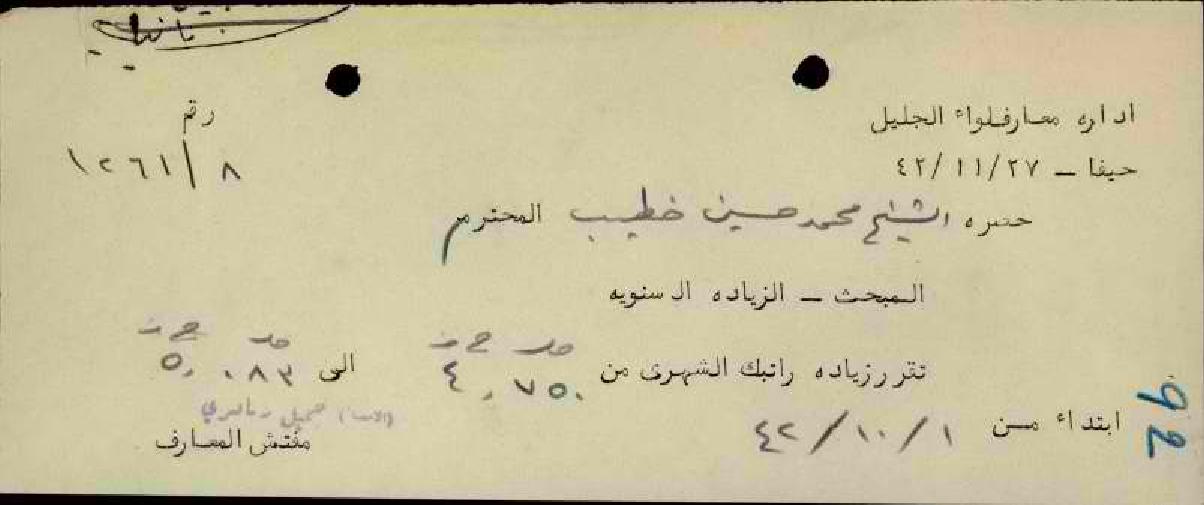 ثانيا
اداره معارف لواء الجليل
رقم
حيفا ـ ٤٢/١١/٢٧
٨/١٢٦١
حضره الشيخ محمد حسين خطيب المحترم
المبحث ـ الزياده السنويه
مل ج ف
مل ج ف
تقرر زياده راتبك الشهرى من ٤,٧٥٠ الى ٥,٠٨٣
ابتداء من ٤٢/١٠/١
مفتش المعارف
92